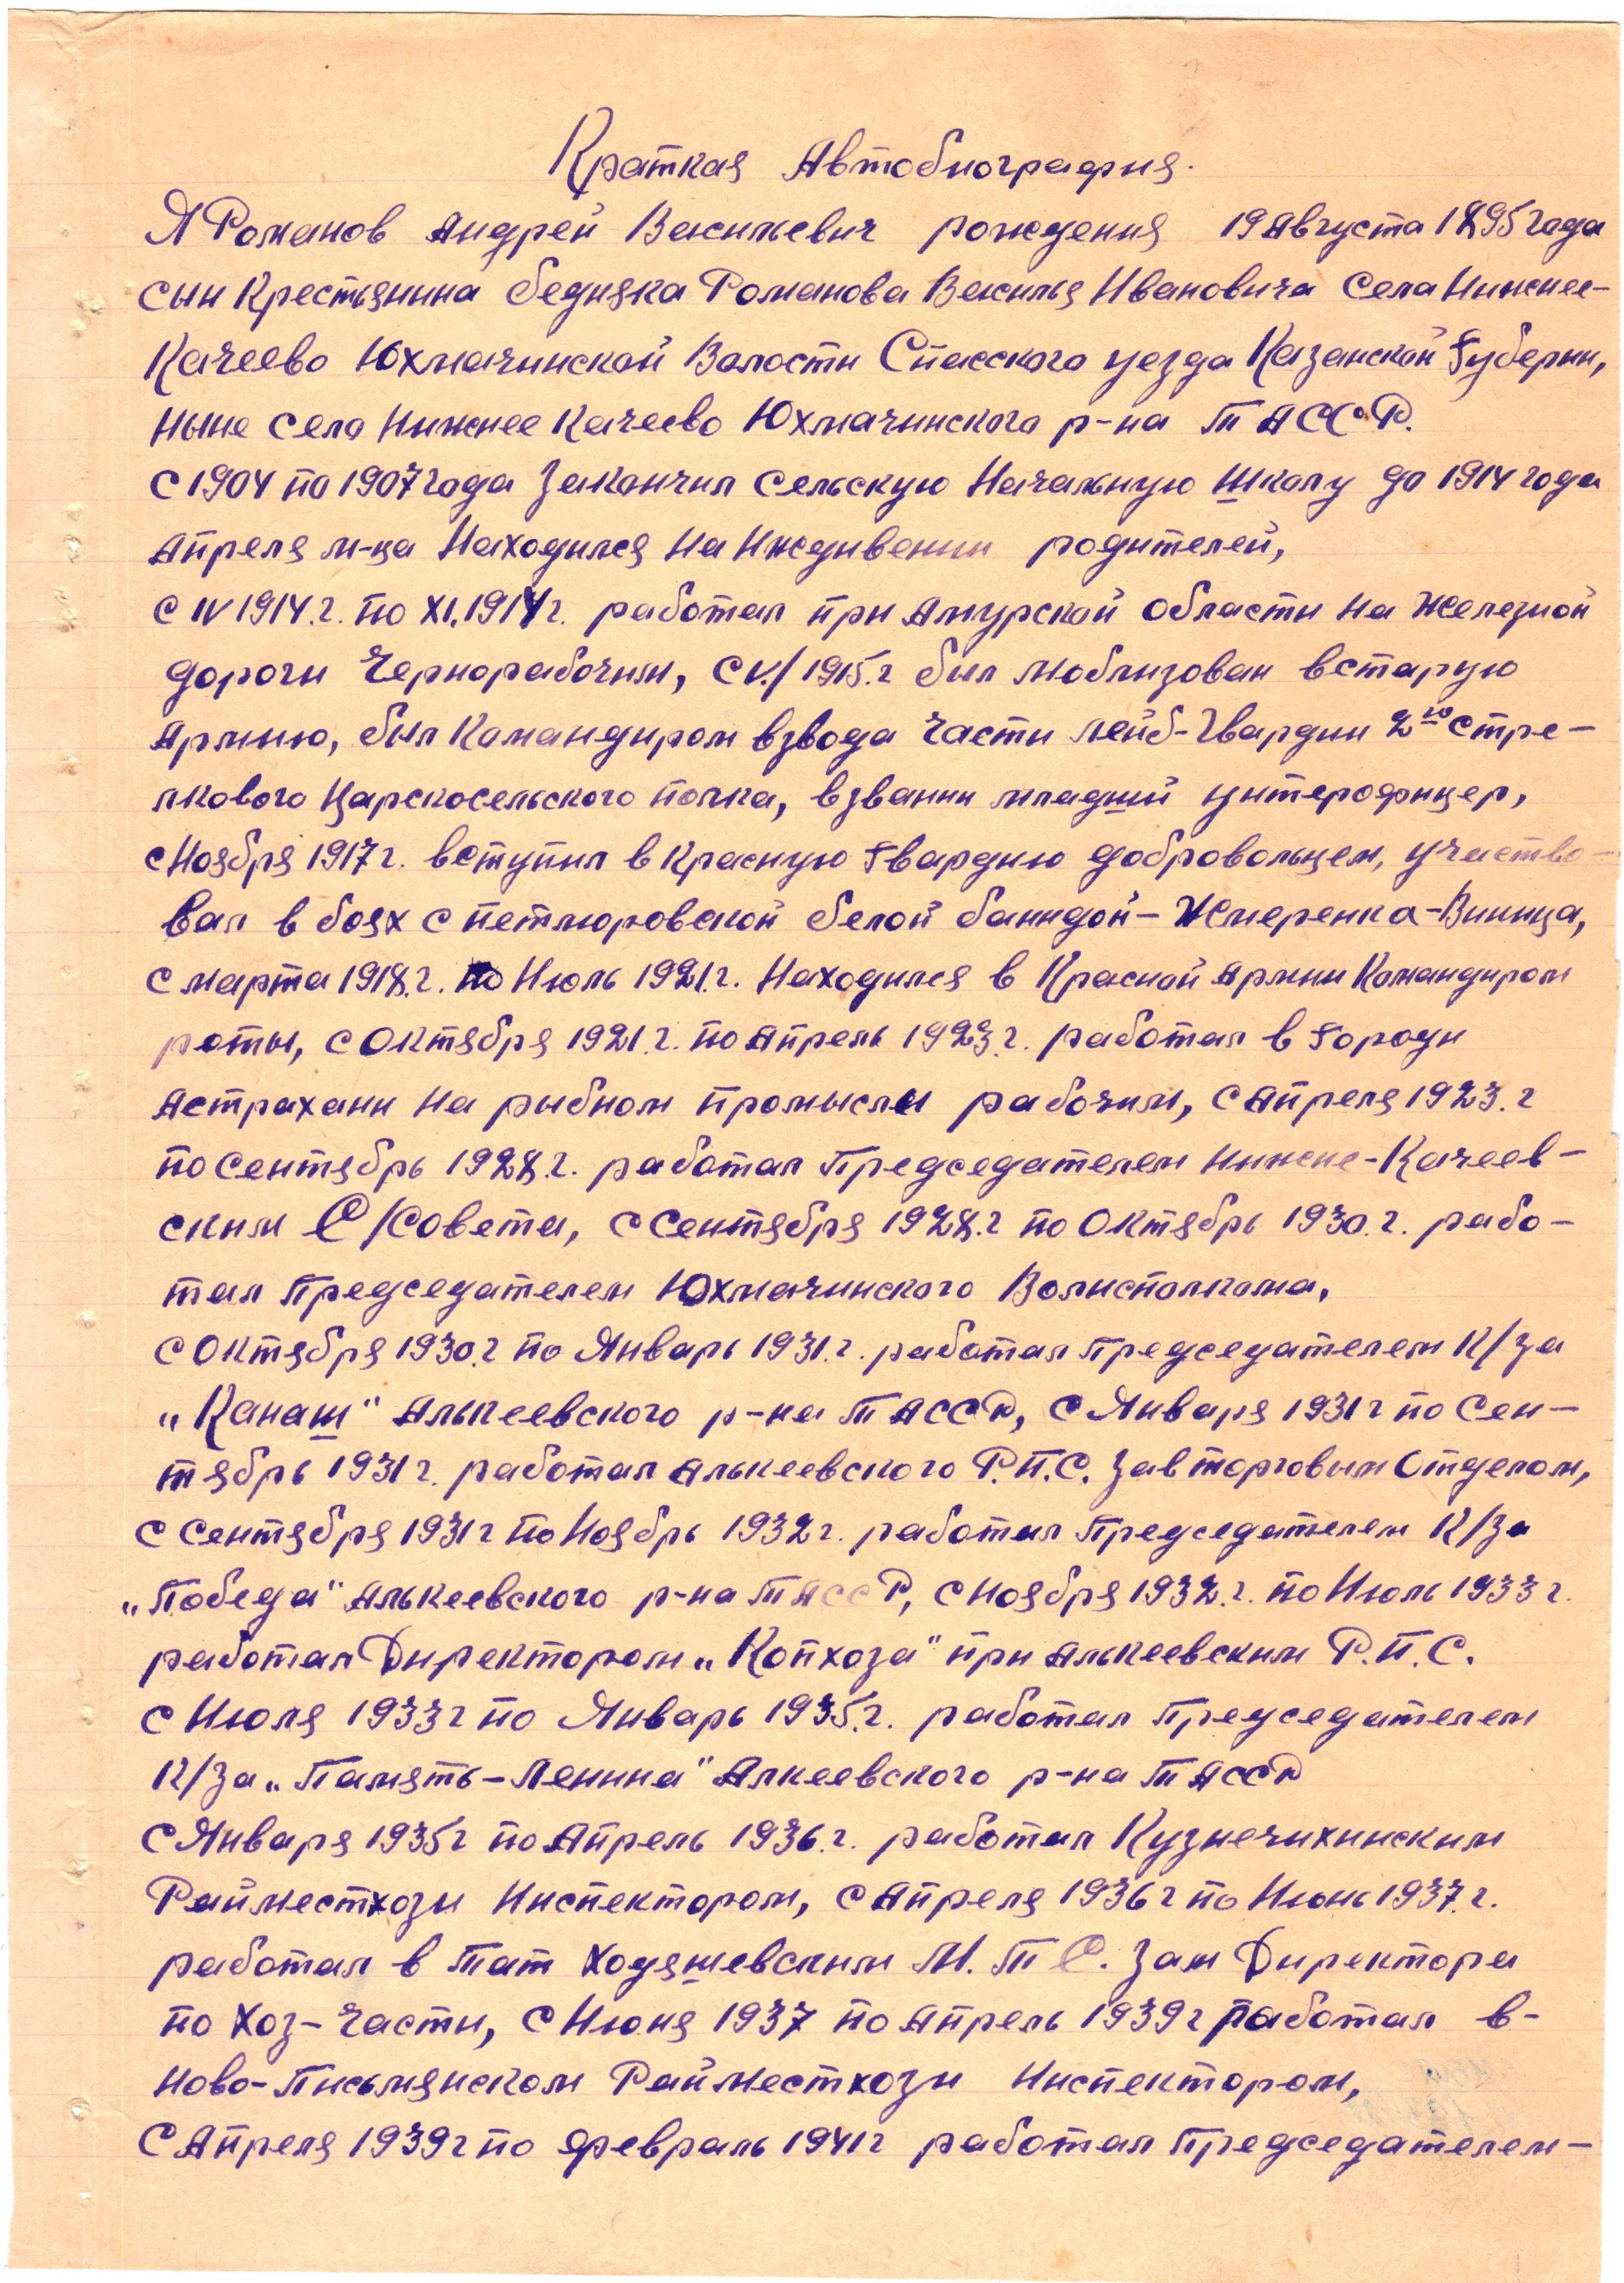 Краткая Автобиография.
Я Романов Андрей Васильевич рождения 19 Августа 1895 года
сын Крестьянина бедняка Романова Василья Ивановича Села Нижнее-
Качеево Юхмачинской Валости Спасского уезда Казанской Губерни,
ныне село Нижнее Качеево Юхмачинского р-на ТАССР.
С 1904 по 1907 года Закончил Сельскую Начальную Школу до 1914 года
Апреля м-ца Находился На Иждивении родителей,
с IV 1914.г. по XI.1914 г. работал при Амурской Области на Железной
дороги Чернорабочим, с V./1915.г был моблизован встарую
Армию, был Командиром взвода Части лейб-Гвардии 2го Стре-
лкового Царскосельского полка, взвании младший унтерофицер,
с Ноября 1917 г. вступил в Красную Гвардию добровольцем, участво-
вал в боях с петлюровской белой бандой-Жмеренка-Виница,
с марта 1918.г. по Июль 1921.г. Находился в Красной Армии Командиром
роты, с Октября 1921.г. по Апрель 1923.г. работал в Городи
Астрахани На рыбном промысле рабочим, с Апреля 1923.г
по Сентябрь 1928.г. работал Председателем Нижне-Качеев-
ским С/Совета, с Сентября 1928.г по Октябрь 1930.г. рабо-
тал Председателем Юхмачинского Волисполкома,
с Октября 1930.г по Январь 1931.г. работал председателем К/за
„Канаш" Алькеевского р-на ТАССР, С Января 1931 г по Сен-
тябрь 1931 г. работал Алькеевского Р.П.С. Зав торговым Отделом,
с Сентября 1931 г по Ноябрь 1932 г. работал Председателем К/За
„Победа" Алькеевского р-на ТАССР, с Ноября 1932.г. по Июль 1933 г.
работал Директором „Копхоза" при Алькеевским Р.П.С.
с Июля 1933 г по Январь 1935.г. работал Председателем
К/За „Память-Ленина" Алкеевского р-на ТАССР
с Января 1935 г по Апрель 1936.г. работал Кузнечихинским
Райместхози Инспектором, с Апреля 1936 г по Июнь 1937.г.
работал в Тат Ходяшевским М.Т С. Зам Директора
по Хоз-Части, с Июня 1937 по Апрель 1939 г работал в-
Ново-Письмянском Райместхози Инспектором,
с Апреля 1939 г по Февраль 1941 г работал Председателем-